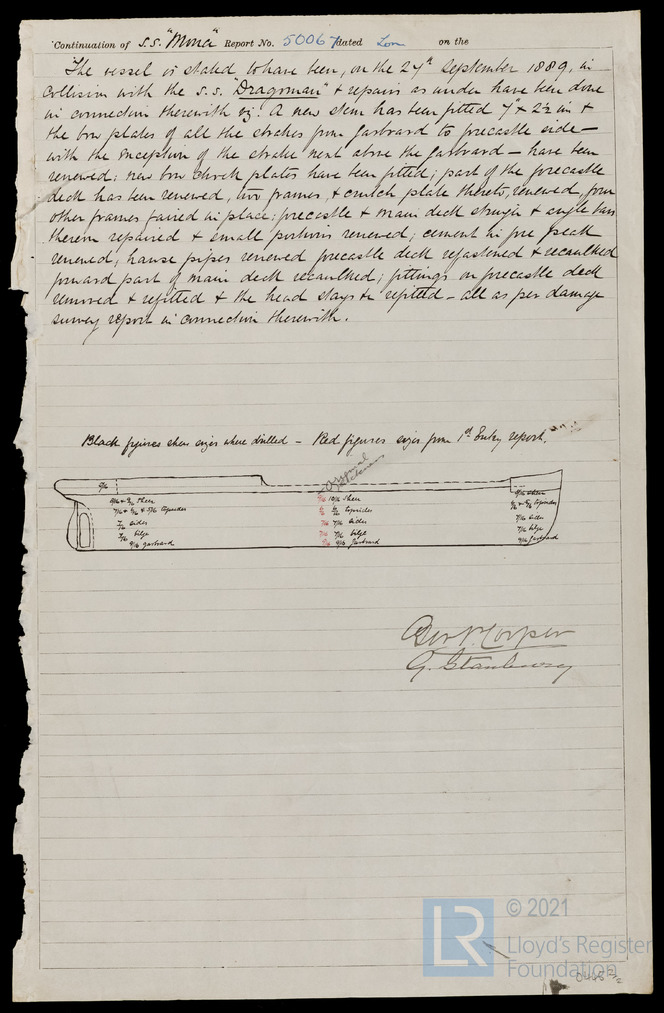 Continuation of S.S. "Mona" Report No. 50067 dated Lon on the
The vessel is stated to have been, on the 27th September 1889, in
Collision with the S.S. "Dragoman" & repairs as under have been done
in connection therewith viz: A new stem has been fitted 7" x 2½ in &
the bow plates of all the strakes from garboard to forecastle side —
with the exception of the strake next above the garboard — have been
renewed; new bow chock plates have been fitted; part of the forecastle
deck has been renewed, two frames, & crutch plate thereto, renewed, four
other frames faired in place; forecastle & main deck & angle bars
therein repaired & small portions renewed; cement in fore peak
renewed; hawse pipes renewed forecastle deck refastened & recaulked
forward part of main deck recaulked; fittings on forecastle deck
removed & refitted & the head stays &c refitted — all as per damage
survey report in connection therewith.
Black figures shew sizes where drilled — Red figures sizes from 1st Entry report.
Original thickness
9/16
10/16 sheer
9/16 sheer
7/16 sides
7/16 sides
7/16 sides
7/16 bilge
7/16 bilge
7/16 bilge
9/16 garboard
9/16 garboard
9/16 garboard
Cooper
G. Stanbury
© 2021
LR
Lloyd's Register
Foundation